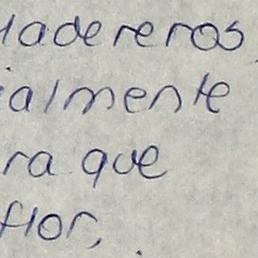 ladereros,
ialmente
ra que
flor,